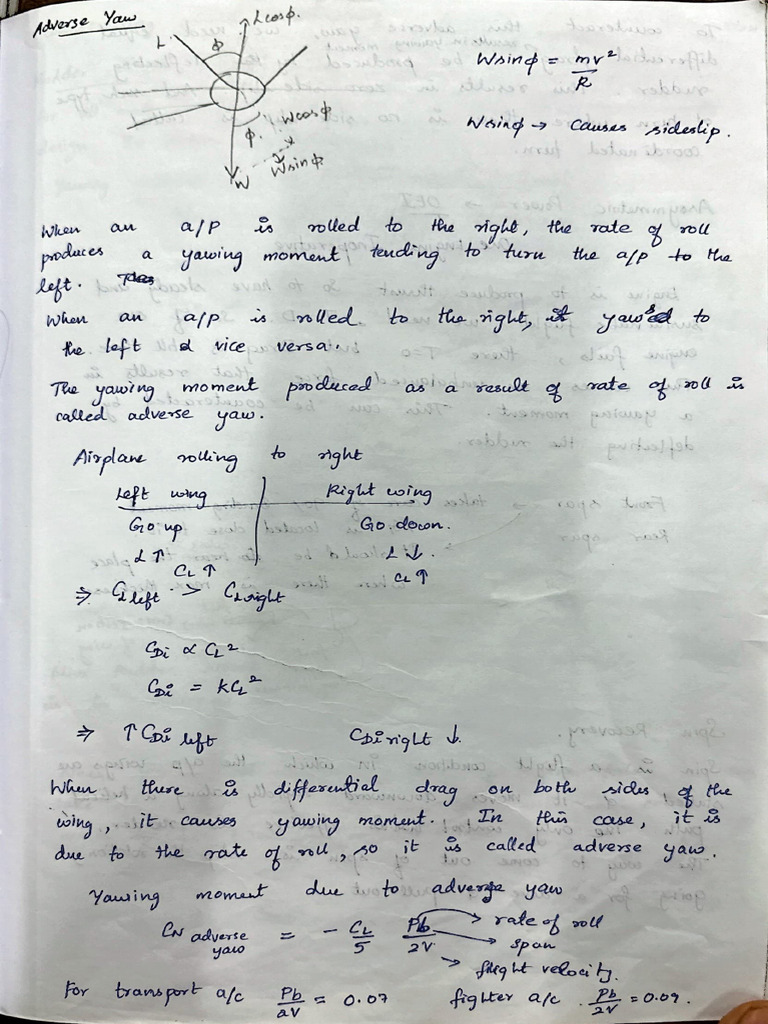 Adverse Yaw
L Lcosφ.
φ
φ. Wcosφ
W Wsinφ
Wsinφ = mv²/R
Wsinφ → Causes sideslip.
When an a/p is rolled to the right, the rate of roll
produces a yawing moment tending to turn the a/p to the
left.
When an a/p is rolled to the right, it yaws to
the left & vice versa.
The yawing moment produced as a result of rate of roll is
called adverse yaw.
Airplane rolling to right
Left wing Right wing
Go up Go down.
α ↑ α ↓.
CL ↑ CL ↑
⇒ CL left > CL right
CDi ∝ CL²
CDi = KCL²
⇒ ↑ CDi left CDi right ↓
When there is differential drag on both sides of the
wing, it causes yawing moment. In this case, it is
due to the rate of roll, so it is called adverse yaw.
Yawing moment due to adverse yaw
CN adverse yaw = - CL/5 Pb/2V → rate of roll
→ span
→ flight velocity.
For transport a/c Pb/2V = 0.07 fighter a/c. Pb/2V = 0.09.